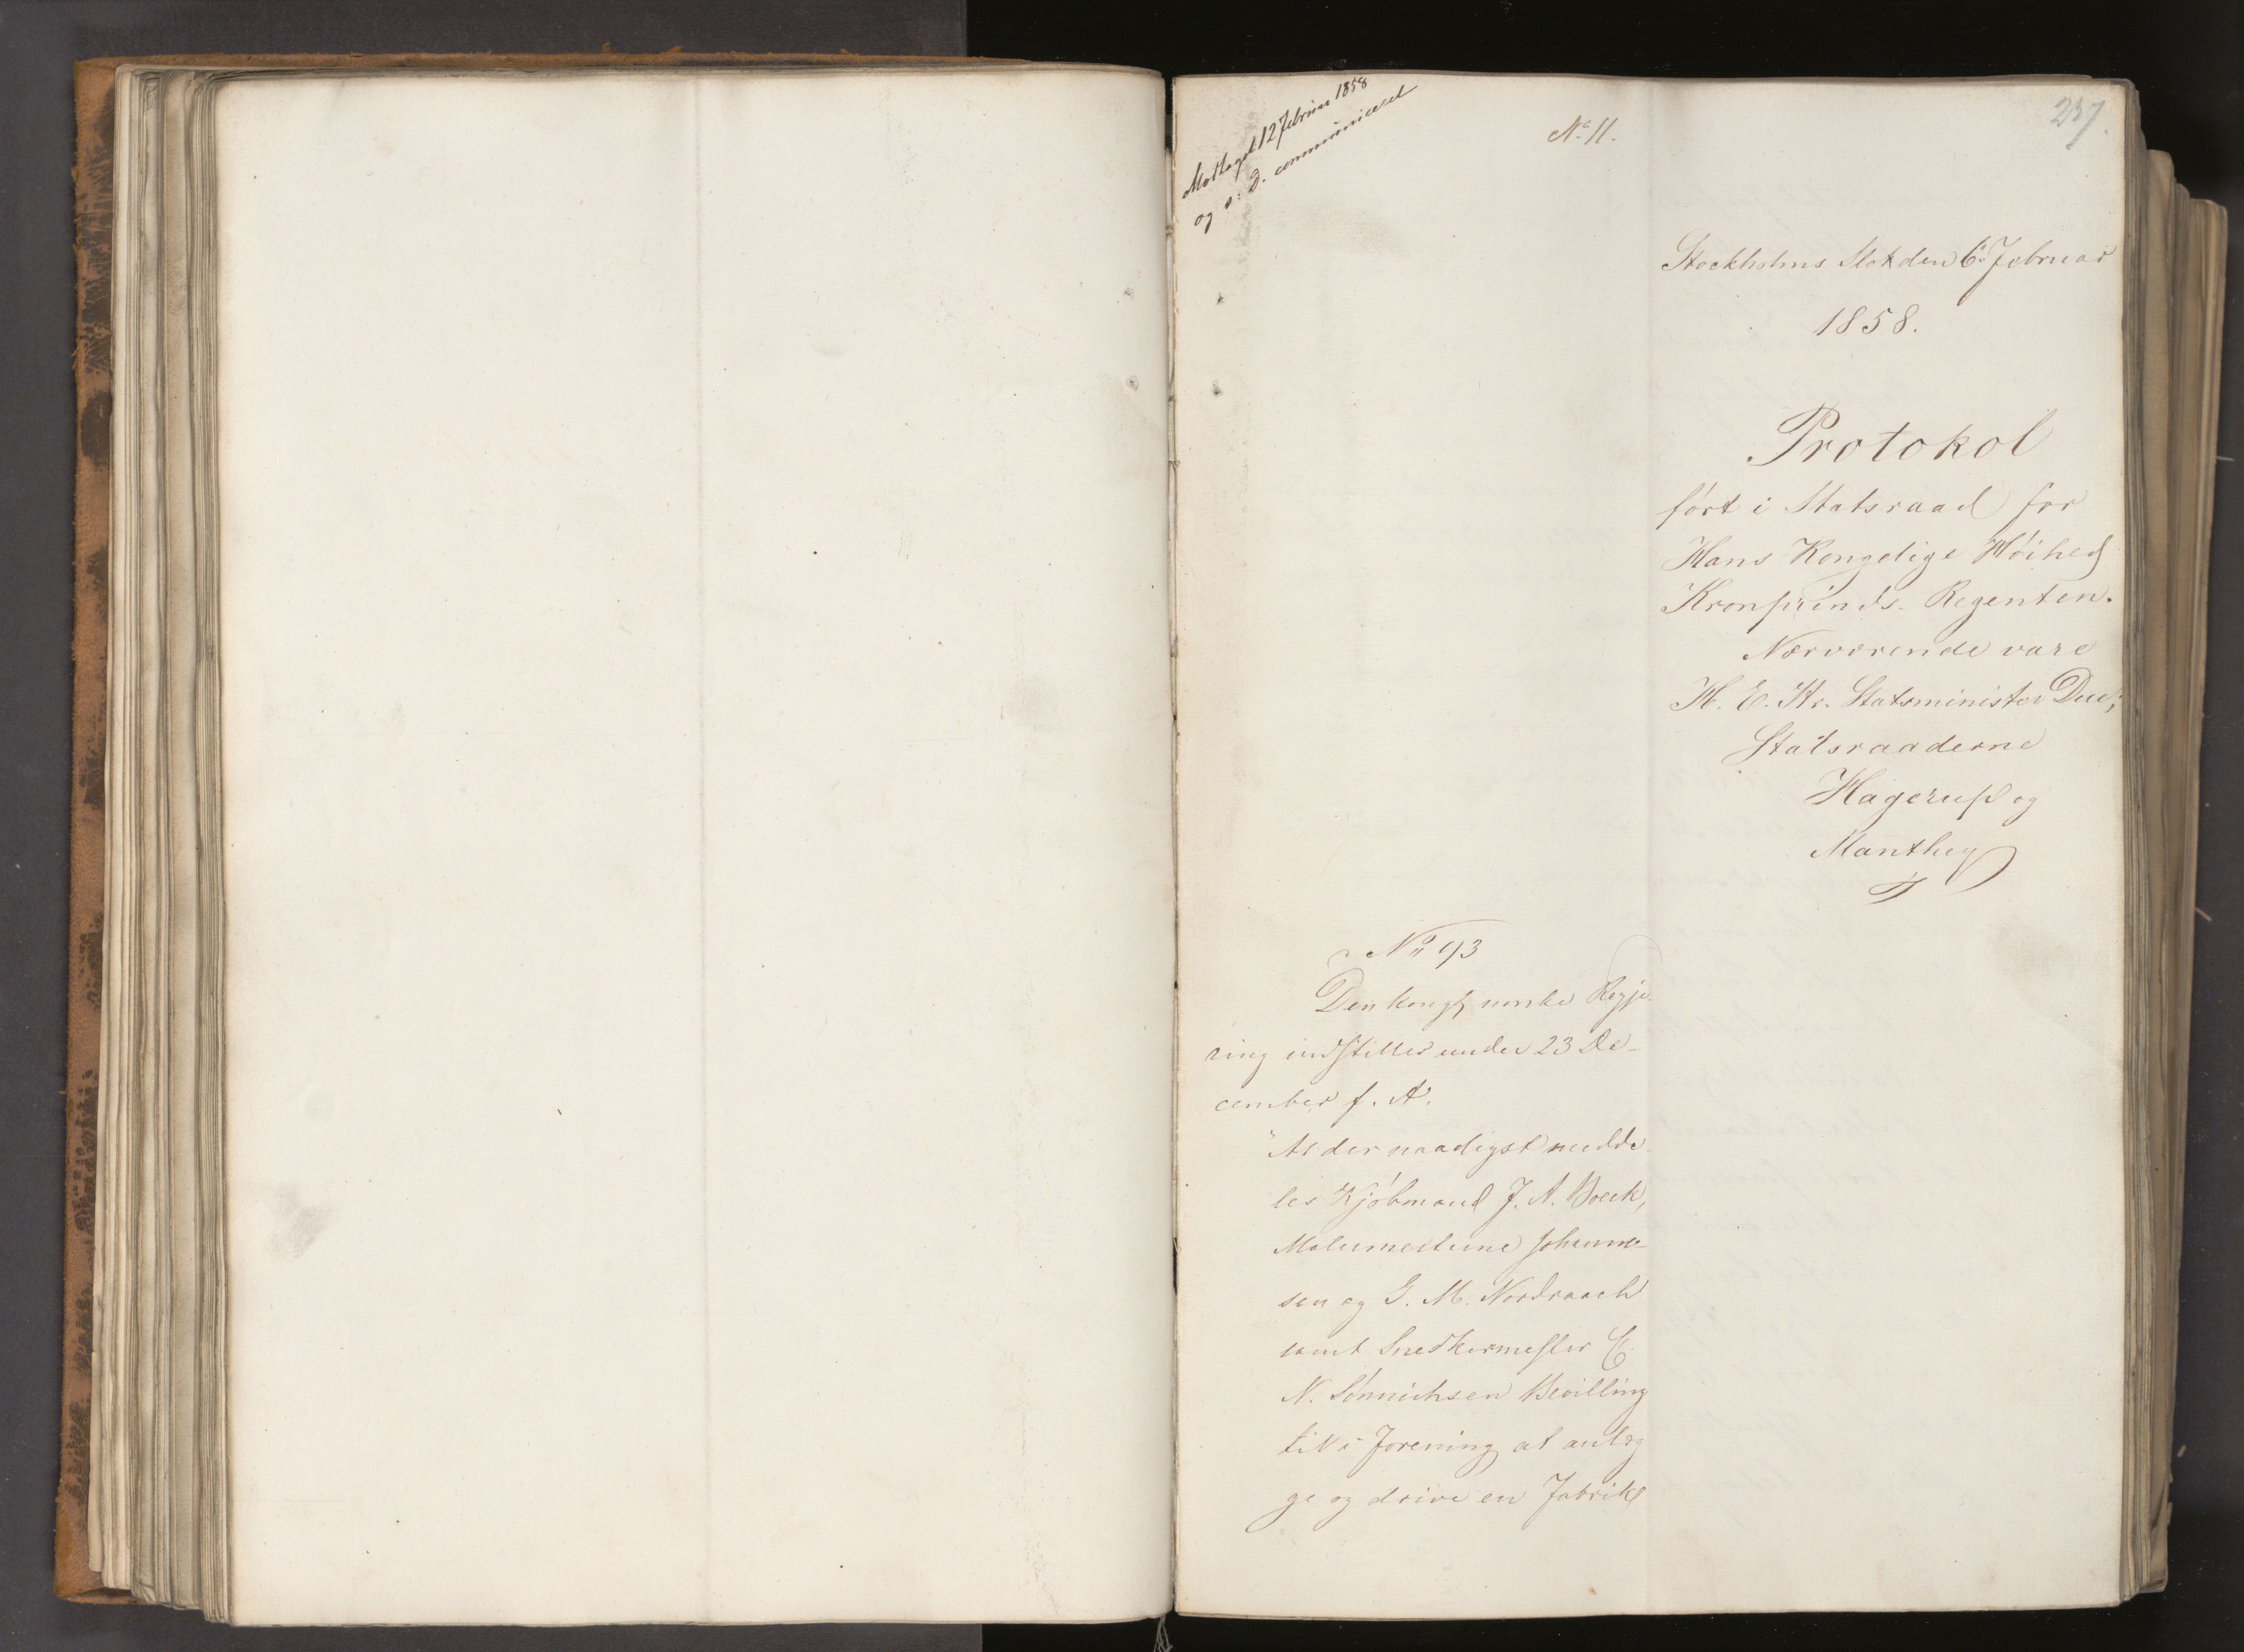 Motttaget 12 Februar 1858
og s: D. communiceret
No 11.
237.
Stockholms Slot den 6te Februar
1858.
Protokol
ført i Statsraad for
Hans Kongelige Høihed
Kronprinds-Regenten.
Nærværende vare
H. E. Hr. Statsminister Due;
Statsraaderne
Hagerup og
Manthey
No 93
Den kongl norske Regje-
ring indstiller under 23 De-
cember f. A.
"At der naadigst medde-
les Kjøbmand J. A. Boeck,
Malermesterne Johanne-
sen og G. M. Nordraach
samt Snedkermester C.
N. Sønnichsen Bevilling
til i Forening at anlæg
ge og drive en Fabrik